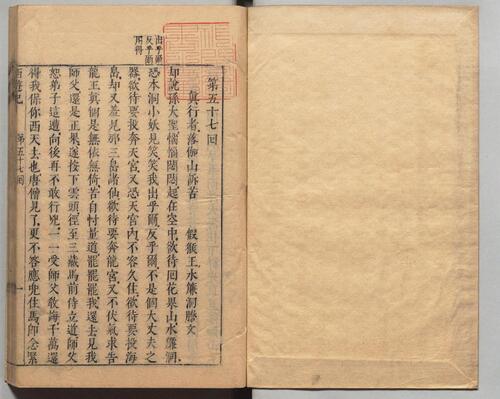 出乎爾
反乎爾
第五十七回
真行者落伽山訴苦　假猴王水簾洞謄文
却說孫大聖惱惱悶悶起在空中欲待回花果山水簾洞
恐本洞小妖見笑笑我出乎爾反乎爾不是個大丈夫之
器欲待要投奔天宮又恐天宮內不容久住欲待要投海
島却又羞見那三島諸仙欲待要奔龍宮又不伏氣求告
龍王真個是無依無倚苦自忖量道罷罷罷我還去見我
師父還是正果遂按下雲頭徑至三藏馬前侍立道師父
恕弟子這遭向後再不敢行兇一一受師父教誨千萬還
得我保你西天去也唐僧見了更不答應兜住馬即念緊
西遊記　第五十七回　一